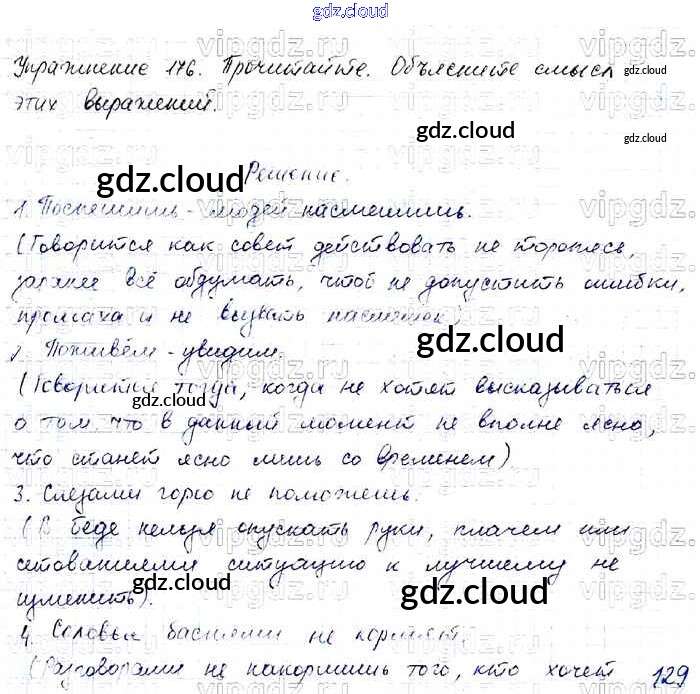 gdz.cloud
Упражнение 176. Прочитайте. Объясните смысл gdz.cloud
этих выражений.
gdz.cloud
gdz.cloud
gdz.cloud
Решение.
1. Поспешишь - людей насмешишь.
(Говорится как совет действовать не торопясь,
заранее всё обдумать, чтоб не допустить ошибки,
промаха и не вызвать насмешек)
gdz.cloud
gdz.cloud
2. Поживём - увидим.
(Говорится тогда, когда не хотят высказываться
gdz.cloud
о том, что в данный момент не вполне ясно,
что станет ясно лишь со временем)
3. Слезами горю не поможешь.
(В беде нельзя опускать руки, плачем или
сетованиями ситуацию к лучшему не
gdz.cloud
gdz.cloud
изменить).
4. Соловья баснями не кормят.
(Разговорами не накормишь того, кто хочет 129